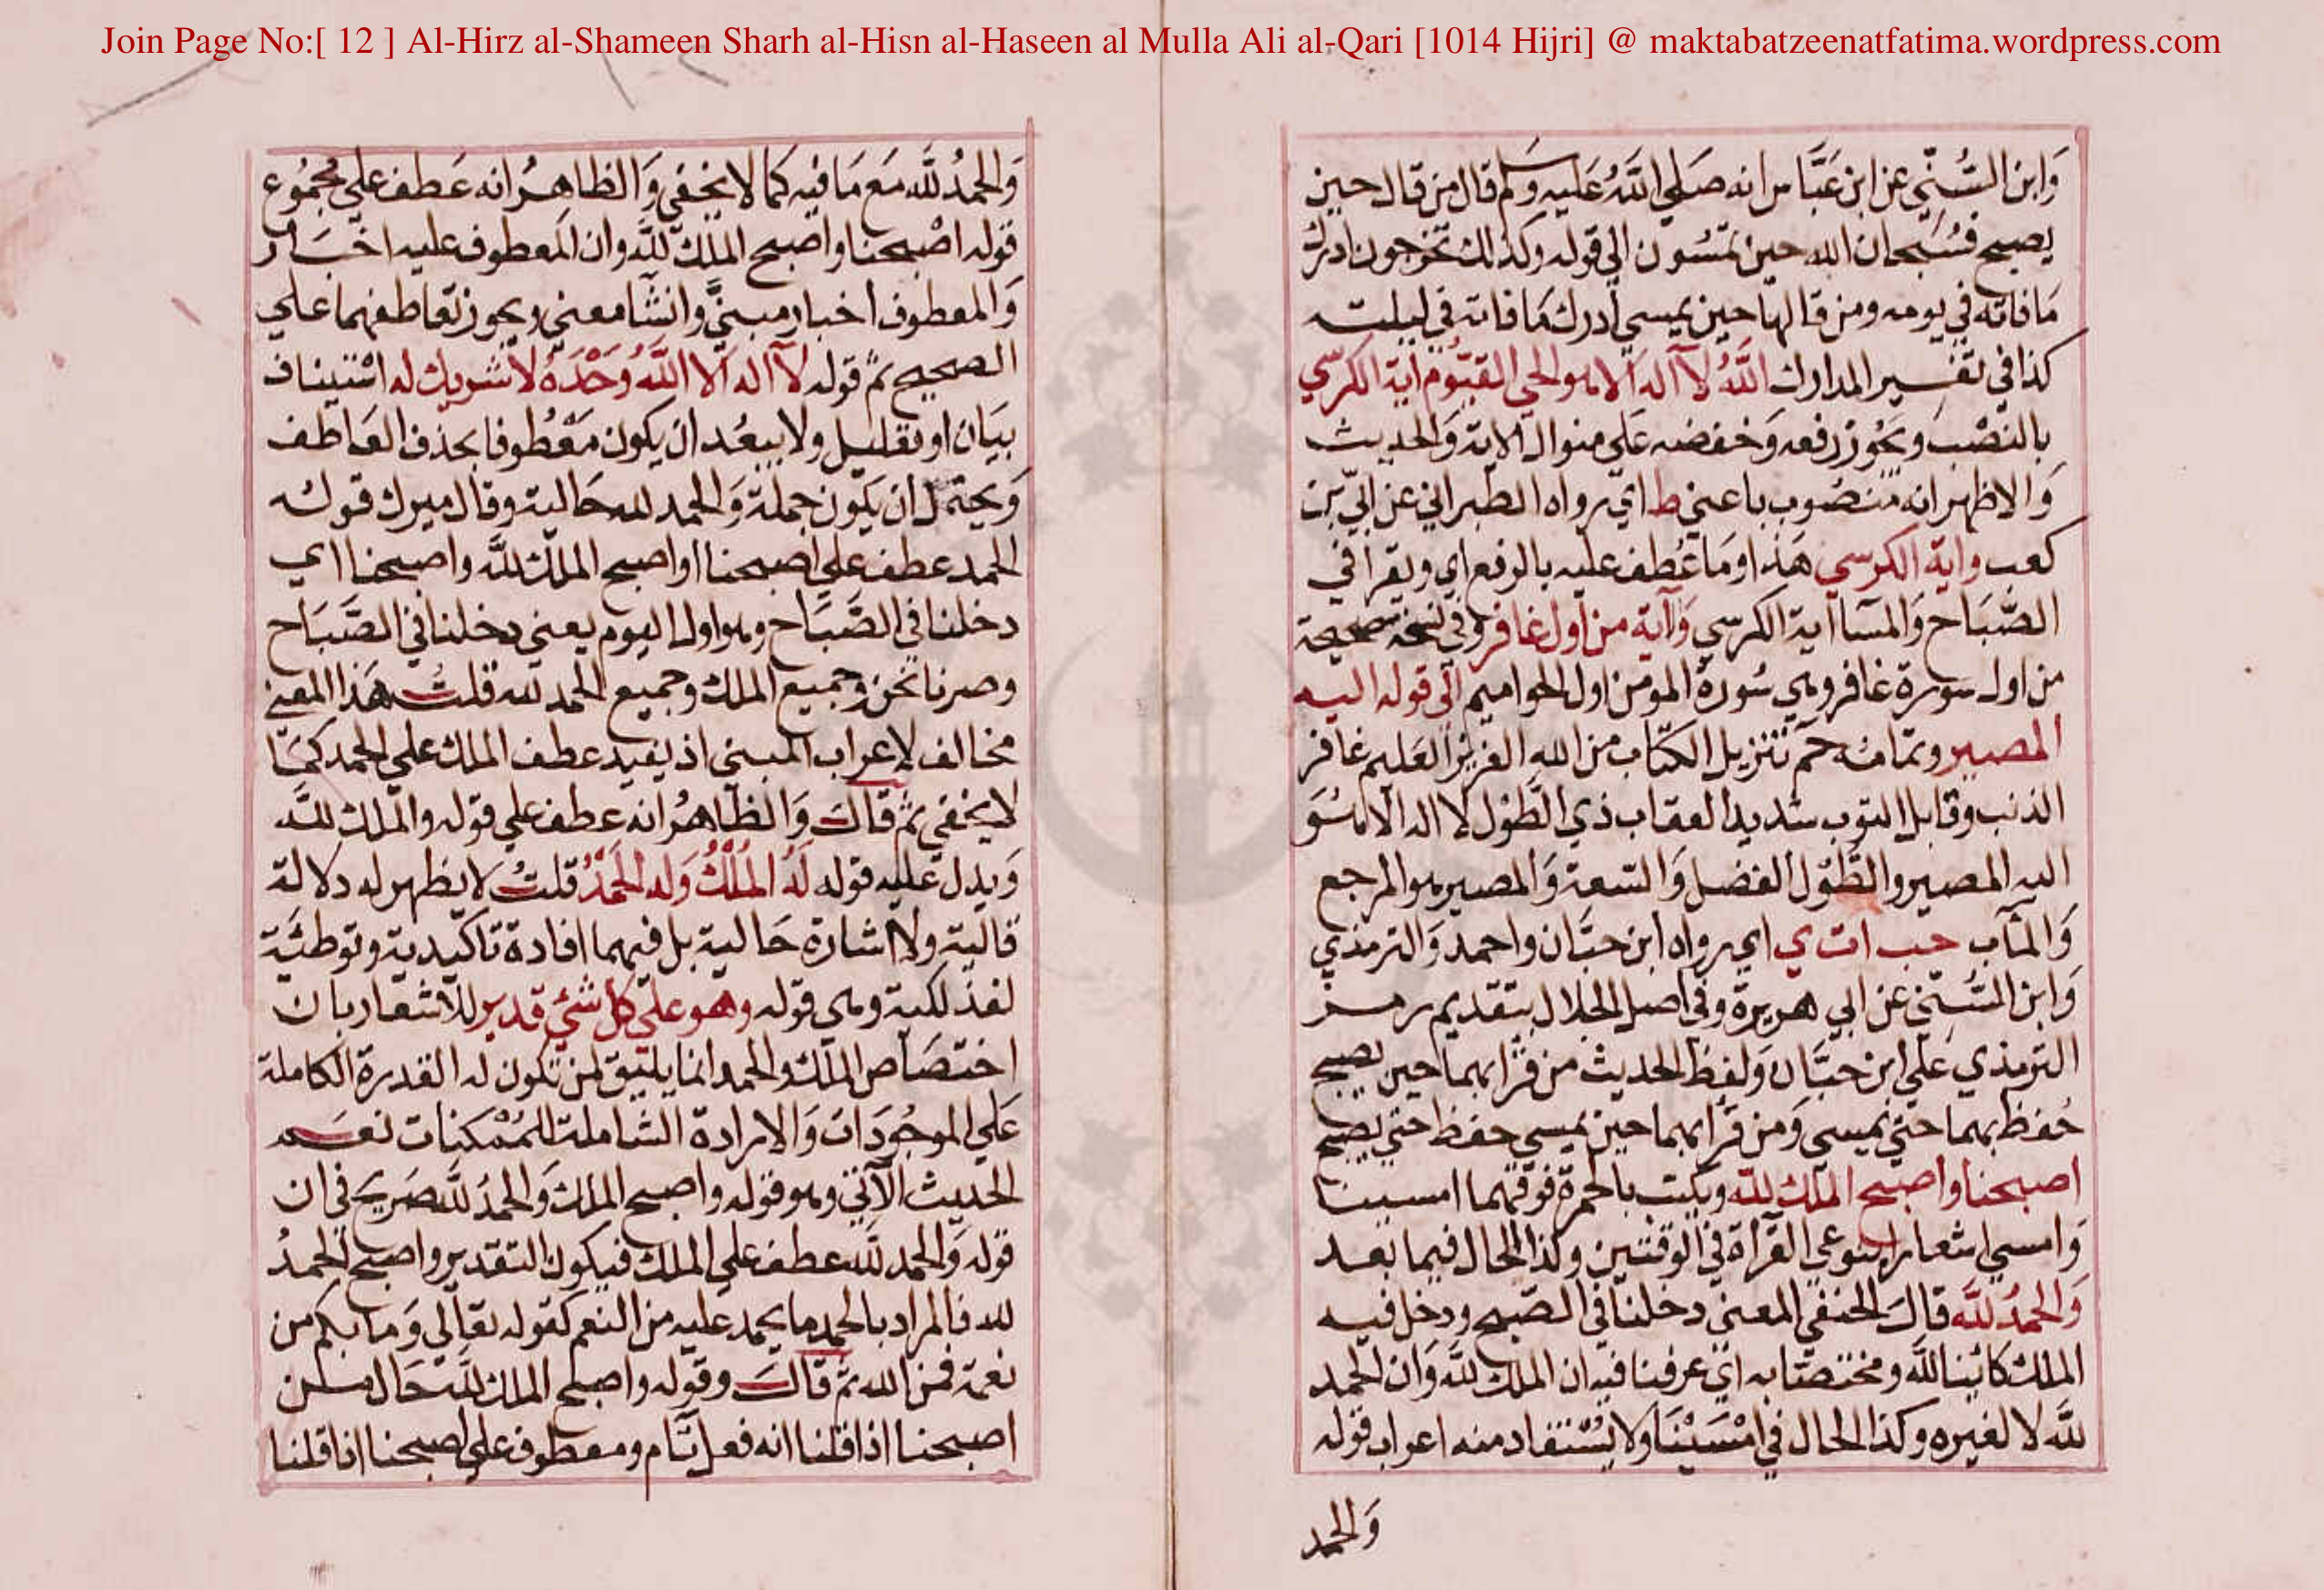 Join Page No:[ 12 ] Al-Hirz al-Shameen Sharh al-Hisn al-Haseen al Mulla Ali al-Qari [1014 Hijri] @ maktabatzeenatfatima.wordpress.com
وَابن السُّنّي عن ابن عَبَّاس انه صَلي اللَّهُ عَليه وسَلم قال من قال حين
يصبح فسُبحان الله حين تمسُون الي قوله وكذلك تخرجون ادرك
مَا فاته في يومه ومن قالها حين يمسي ادرك مَا فاته في ليلته
كذا في تفسير المدارك اللَّهُ لآ اله الا هو الحي القيّوُم اية الكرسّي
بالنصْب ويَجُوز رفعه وَخفضه عَلي منوال الاية وَالحديث
وَالاظهر انه مَنصُوب باعني ط اي رواه الطبراني عن ابيّ بن
كعب واية الكرسي هَذا وما عُطف عليه بالرفع اي ويقرا في
الصَّبَاح وَالمسَآ اية الكرسّي وَآية من اول غافر وفي نسخة صحيحة
من اول سورة غافر وهي سُورة المومن اول الحواميم الي قوله اليه
المصير وتمامه حم تنزيل الكتاب من الله العزيز العَليم غافر
الذنب وقابل التوب شديد العقاب ذي الطَّوْل لا اله الا هُوَ
اليه المصير والطَّوْل الفضل وَالسّعة وَالمصير هو المرجع
وَالمآب حب ا ت ي اي رواه ابن حبَّان واحمد وَالترمذي
وَابن السُّنّي عن ابي هريرة وفي اصل الجلال بتقديم رمز
الترمذي عَلي ابن حبَّان وَلفظ الحديث من قرَا بهما حين يصبح
حُفظ بهما حتي يمسي وَمن قرَا بهما حين يمسي حفظ حتي يصبح
اصبحنا واصبح الملك للّه ويكتب بالحمرة فوقهما امسينا
وَامسي اشعارا بنوعي القرَاة في الوقتين وكذا الحال فيما بعد
وَالحمدُ للَّه قال الحنفي المعني دخلنا في الصّبح ودخل فيه
الملك كائينا للَّه ومختصّا به اي عرفنا فيه ان الملك للَّه وَان الحمد
للَّه لا لغيره وكذا الحال في امْسَيْنَا ولا يُسْتفاد منه اعراب قوله
وَالحمد
وَالحمدُ للَّه مَع مَا فيه كمَا لا يخفي وَالظاهرُ انه عَطف علي مجمُوع
قوله اصْبحنا واصبح الملك للَّه وان المعطوف عليه اخبَار
وَالمعطوف اخبار مبنيً وانشآ معني ويجوز تعاطفهما علي
الصحيح ثم قوله لآ اله الا اللَّه وَحْدَهُ لا شريك له استيناف
بيَان او تعليل ولا يبعُد ان يكون مَعْطوفا بحذف العَاطف
وَيحتمل ان يكون جملة وَالحمد لله حَالية وقال ميرك قوله
الحمد عطف علي اصبحنا او اصبح الملك للَّه واصبحنا اي
دخلنا في الصَّبَاح وهو اول اليوم يعني دخلنا في الصَّبَاح
وصرنا نحن وجميع الملك وجميع الحمد لله قلت هَذا المعني
مخالف لاعراب المبني اذ يفيد عطف الملك علي الحمد كمَا
لا يخفي ثم قال وَالظاهرُ انه عطف علي قوله والملك للَّه
وَيدل عَليه قوله لَهُ المُلْكُ وَله الحَمْدُ قلتُ لا يظهر له دلالة
قالية ولا اشارة حَالية بل فيهما افادة تاكيدية وتوطئة
لفذلكية وهي قوله وهو علي كل شيْ قدير للاشعار بان
اختصَاص الملك والحمد انما يليق لمن تكون له القدرة الكاملة
عَلي الموجُودَات وَالارادة الشاملة للمُمْكنات نعَم
الحديث الآتي وهو قوله واصبح الملك وَالحمدُ للَّه صَريح في ان
قوله وَالحمد للَّه عطف علي الملك فيكون التقدير واصبح الحمدُ
لله فالمراد بالحمد ما يحمد عليه من النعم كقوله تعَالي وَما بكم من
نعمة فمن الله ثم قال وقوله واصبح الملك للَّه حَال من
اصبحنا اذا قلنا انه فعل تام ومعطوف علي اصبحنا اذا قلنا